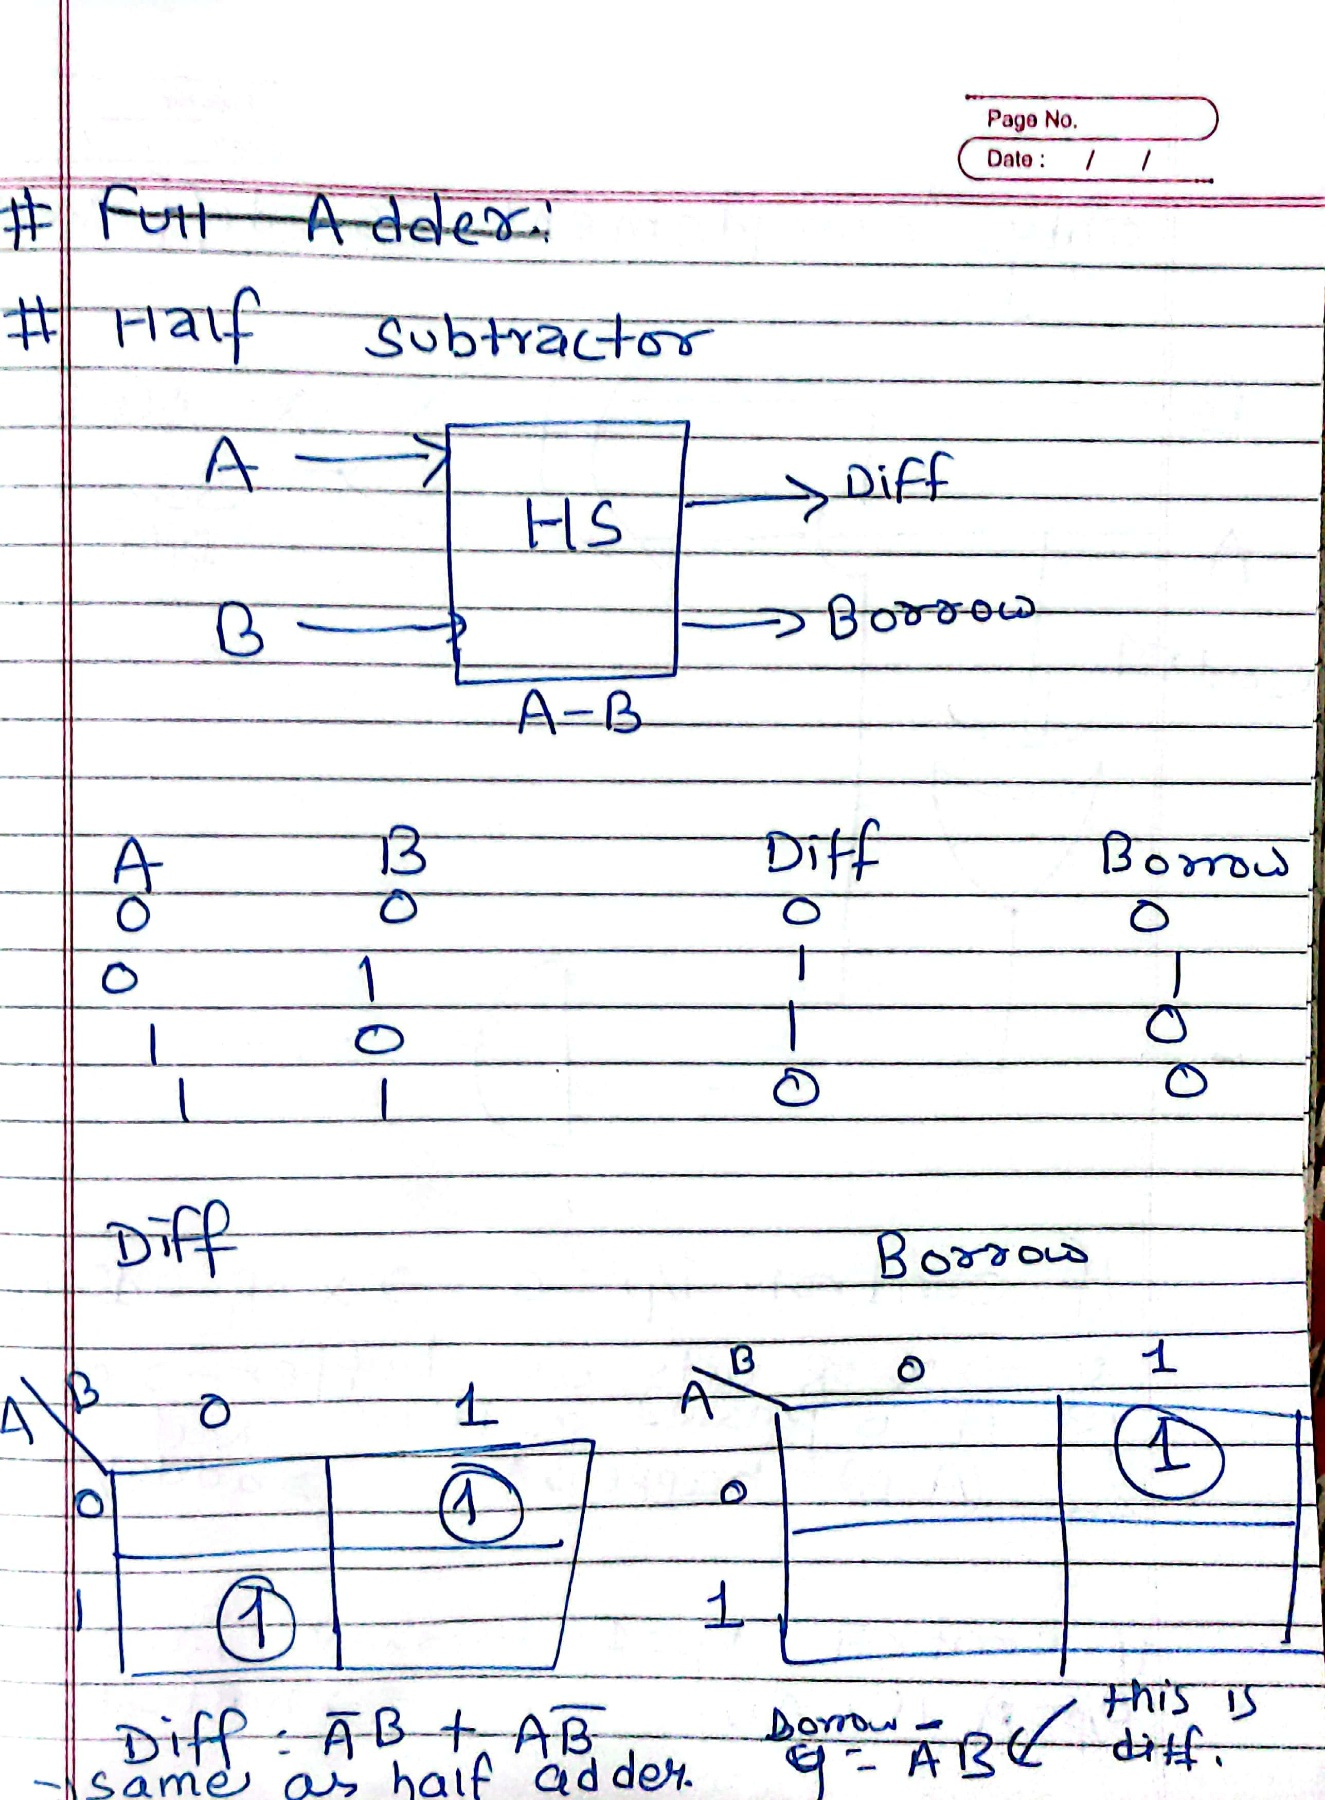 Page No.
Date : / /
# Full Adder:
# Half Subtractor
A
Diff
HS
B
Borrow
A-B
A B Diff Borrow
0 0 0 0
0 1 1 1
1 0 1 0
1 1 0 0
Diff
Borrow
A B 0 1
0 1
1 1
A B 0 1
0 1
1
Diff : A̅B + AB̅
- same as half adder.
Borrow = A̅B
this is
diff.